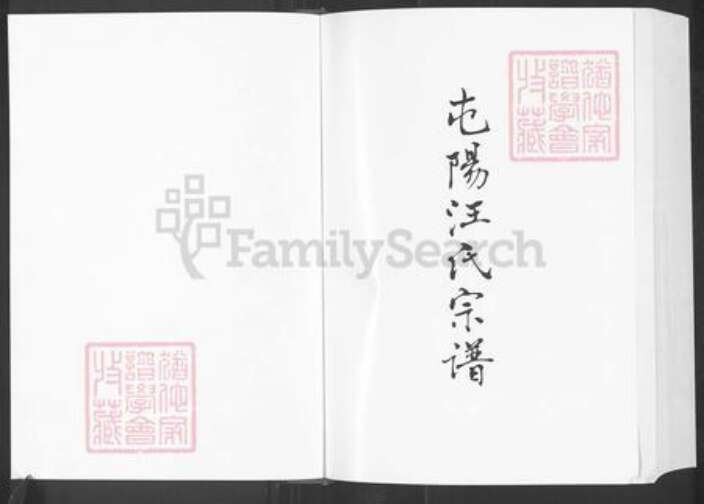 屯陽汪氏宗谱
猶他家
譜學會
收藏
猶他家
譜學會
收藏
FamilySearch